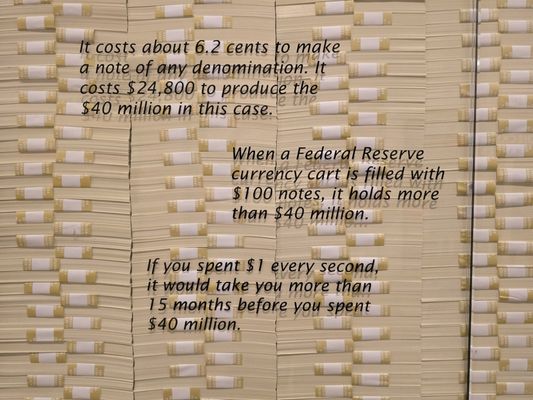 It costs about 6.2 cents to make
a note of any denomination. It
costs $24,800 to produce the
$40 million in this case.
When a Federal Reserve
currency cart is filled with
$100 notes, it holds more
than $40 million.
If you spent $1 every second,
it would take you more than
15 months before you spent
$40 million.